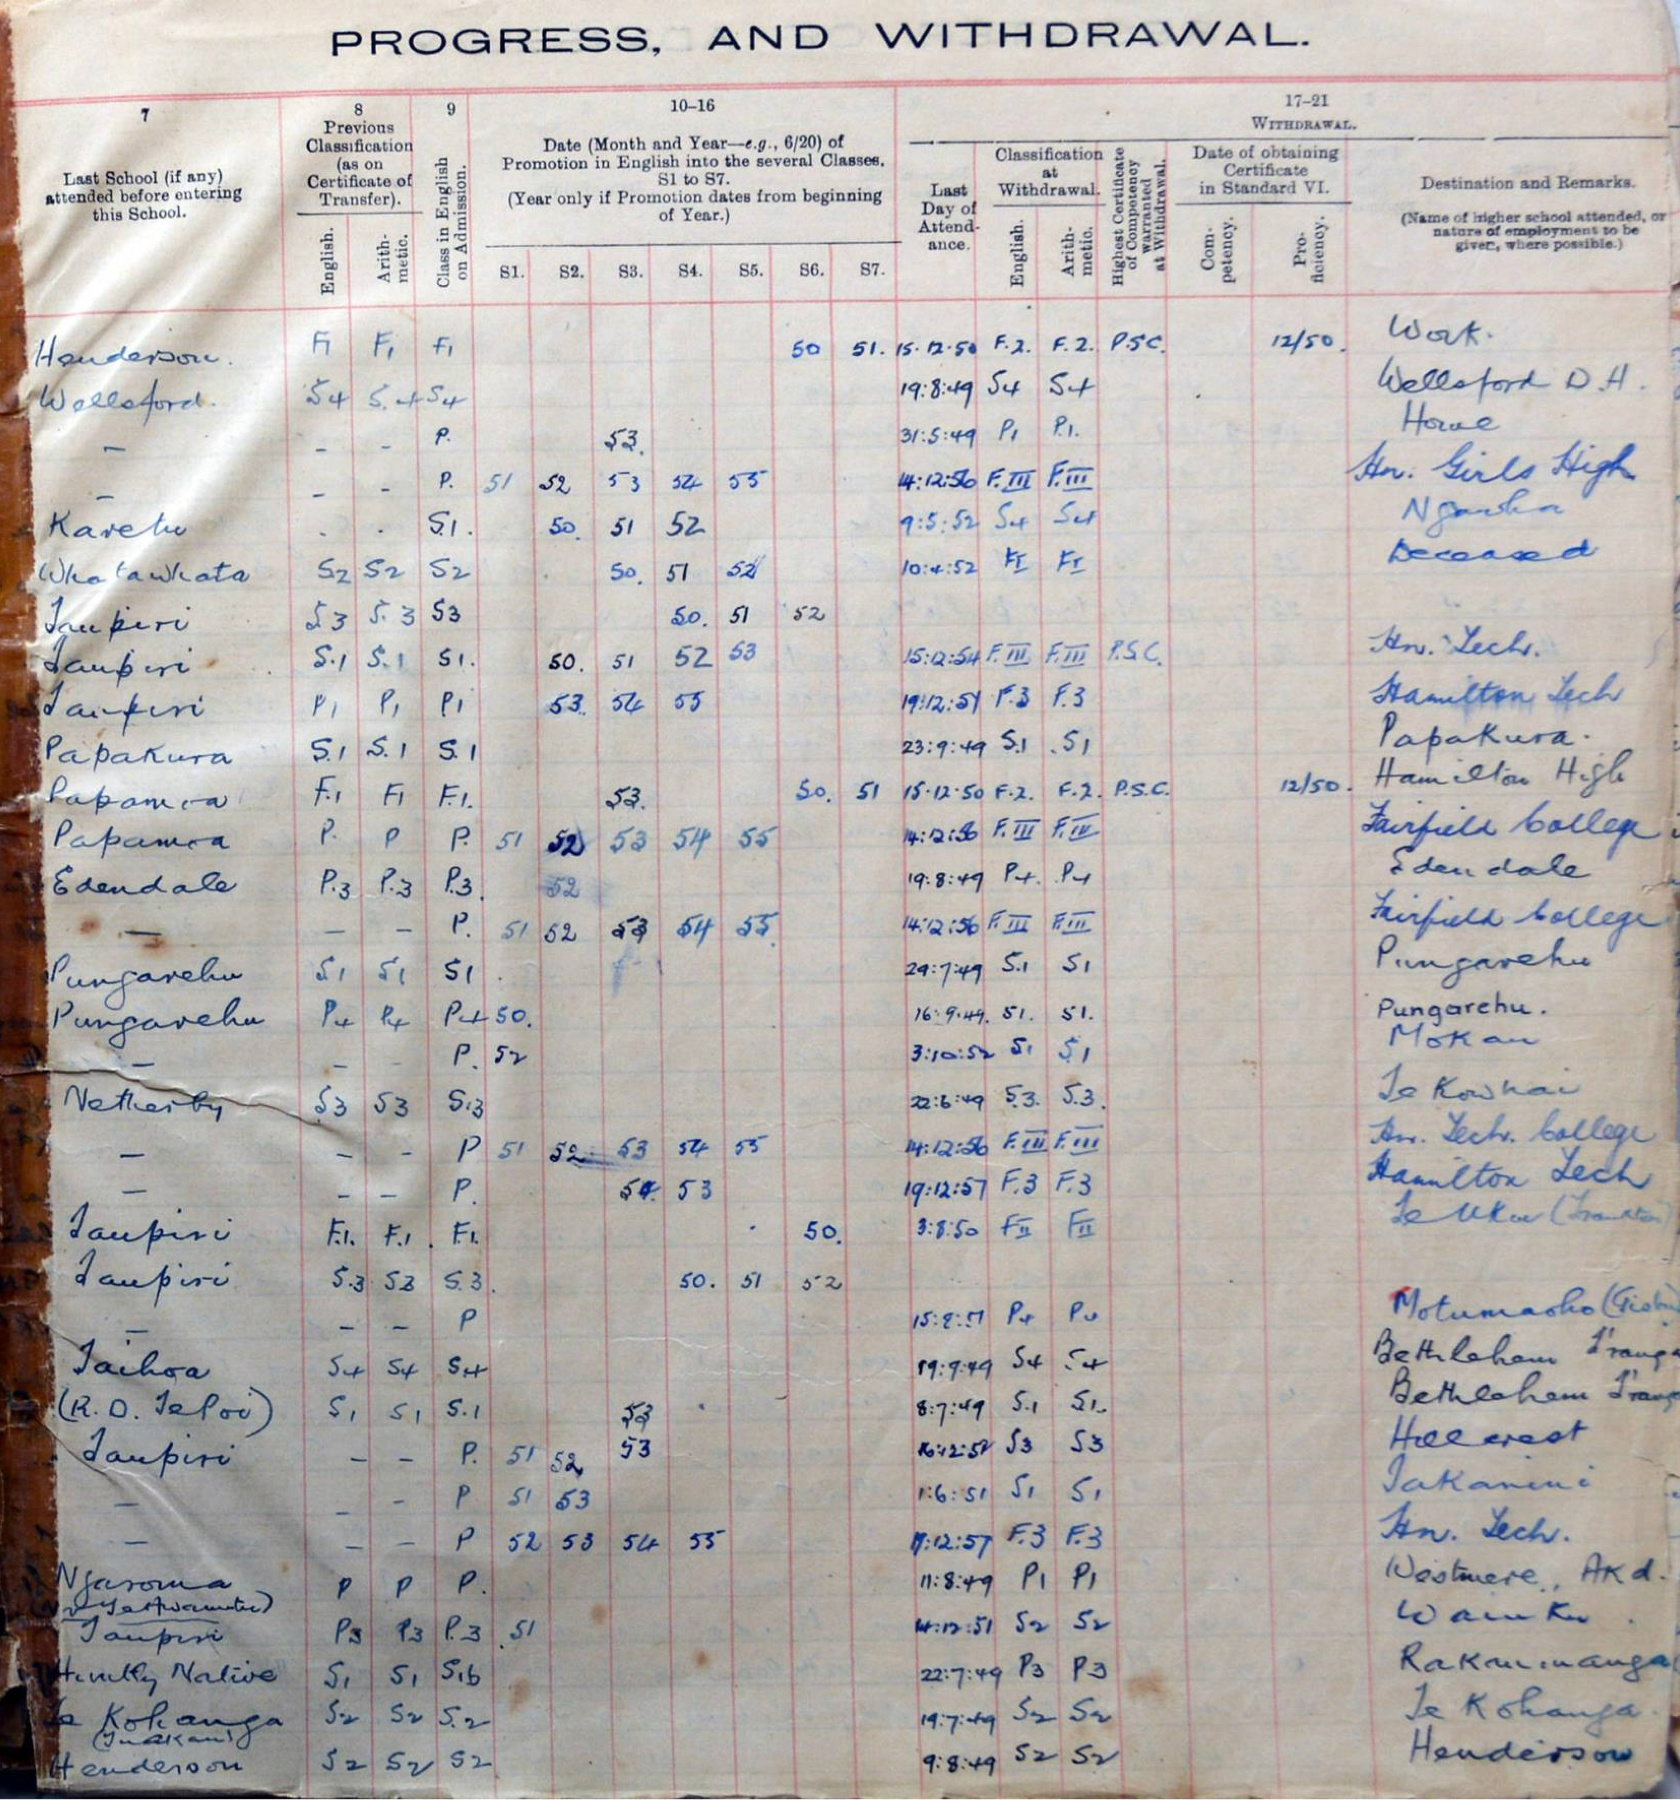 PROGRESS, AND WITHDRAWAL.
7
Last School (if any) attended before entering this School.
8
Previous Classification (as on Certificate of Transfer).
English.
Arithmetic.
9
Class in English on Admission.
10–16
Date (Month and Year—e.g., 6/20) of Promotion in English into the several Classes, S1 to S7.
(Year only if Promotion dates from beginning of Year.)
S1. S2. S3. S4. S5. S6. S7.
17–21
WITHDRAWAL.
Last Day of Attendance.
Classification at Withdrawal.
English.
Arithmetic.
Highest Certificate of Competency warranted at Withdrawal.
Date of obtaining Certificate in Standard VI.
Competency.
Proficiency.
Destination and Remarks.
(Name of higher school attended, or nature of employment to be given, where possible.)
Henderson. F1 F1 F1 50 51. 15.12.50 F.2. F.2. P.S.C. 12/50. Work.
Wellsford. S4 S.4 S4 19:8:49 S4 S4 Wellsford D.H.
— – – P. 53. 31:5:49 P1 P.1. Home
— – – P. 51 52 53 54 55 14:12:56 F.III F.III Hn. Girls High
Karetu . . S.1. 50. 51 52 9:5:52 S4 S4 Ngawha
Whatawhata S2 S2 S2 50. 51 52 10:4:52 FI FI Deceased
Taupiri S3 S.3 S3 50. 51 52
Taupiri S.1 S.1 S1. 50. 51 52 53 15:12:54 F.III F.III P.S.C. Hn. Tech.
Taupiri P1 P1 P1 53. 54 55 19:12:57 F.3 F.3 Hamilton Tech
Papakura S.1 S.1 S.1 23:9:49 S.1 .S1 Papakura.
Papamoa F.1 F1 F.1. 53. 50. 51 15.12.50 F.2. F.2. P.S.C. 12/50. Hamilton High
Papamoa P. P P. 51 52 53 54 55 14:12:56 F.III F.III Fairfield College
Edendale P.3 P.3 P.3. 52 19:8:49 P4. P4 Edendale
— — — P. 51 52 53 54 55. 14:12:56 F.III F.III Fairfield College
Pungarehu S1 S1 S1 29:7:49 S.1 S1 Pungarehu
Pungarehu P4 P4 P4 50. 16:9:49. S1. S1. Pungarehu.
— – – P. 52 3:10:52 S1 S1 Mokau
Netherby S3 S3 S.3 22:6:49 S.3. S.3. Te Kowhai
— – – P 51 52 53 54 55 14:12:56 F.III F.III Hn. Tech. College
— – – P. 54. 53 19:12:57 F.3 F.3 Hamilton Tech
Taupiri F.1. F.1. F.1. 50. 3:8:50 FII FII Te Uku
Taupiri S.3 S3 S.3. 50. 51 52
— – – P P4 P4 Motumaoho
Taihoa S4 S4 S4 19:9:49 S4 S4 Bethlehem
(R.D. Te Poi) S1 S1 S.1 53 8:7:49 S.1 S1. Bethlehem
Taupiri – – P. 51 52 53 S3 S3 Hillcrest
— – P 51 53 1:6:51 S1 S1 Takanini
— – – P 52 53 54 55 F.3 F.3 Hn. Tech.
Ngaroma P P P. 11:8:49 P1 P1 Westmere, Akd.
Taupiri P3 P3 P.3 51 14:12:51 S2 S2 Waiuku.
Huntly Native S1 S1 S1b 22:7:49 P3 P3 Rakaumanga
Te Kohanga S2 S2 S.2 19:7:49 S2 S2 Te Kohanga.
Henderson S2 S2 S2 9:8:49 S2 S2 Henderson